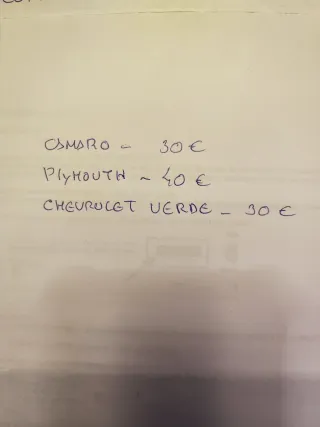 CAMARO - 30 €
PLYMOUTH - 40 €
CHEVROLET VERDE - 30 €